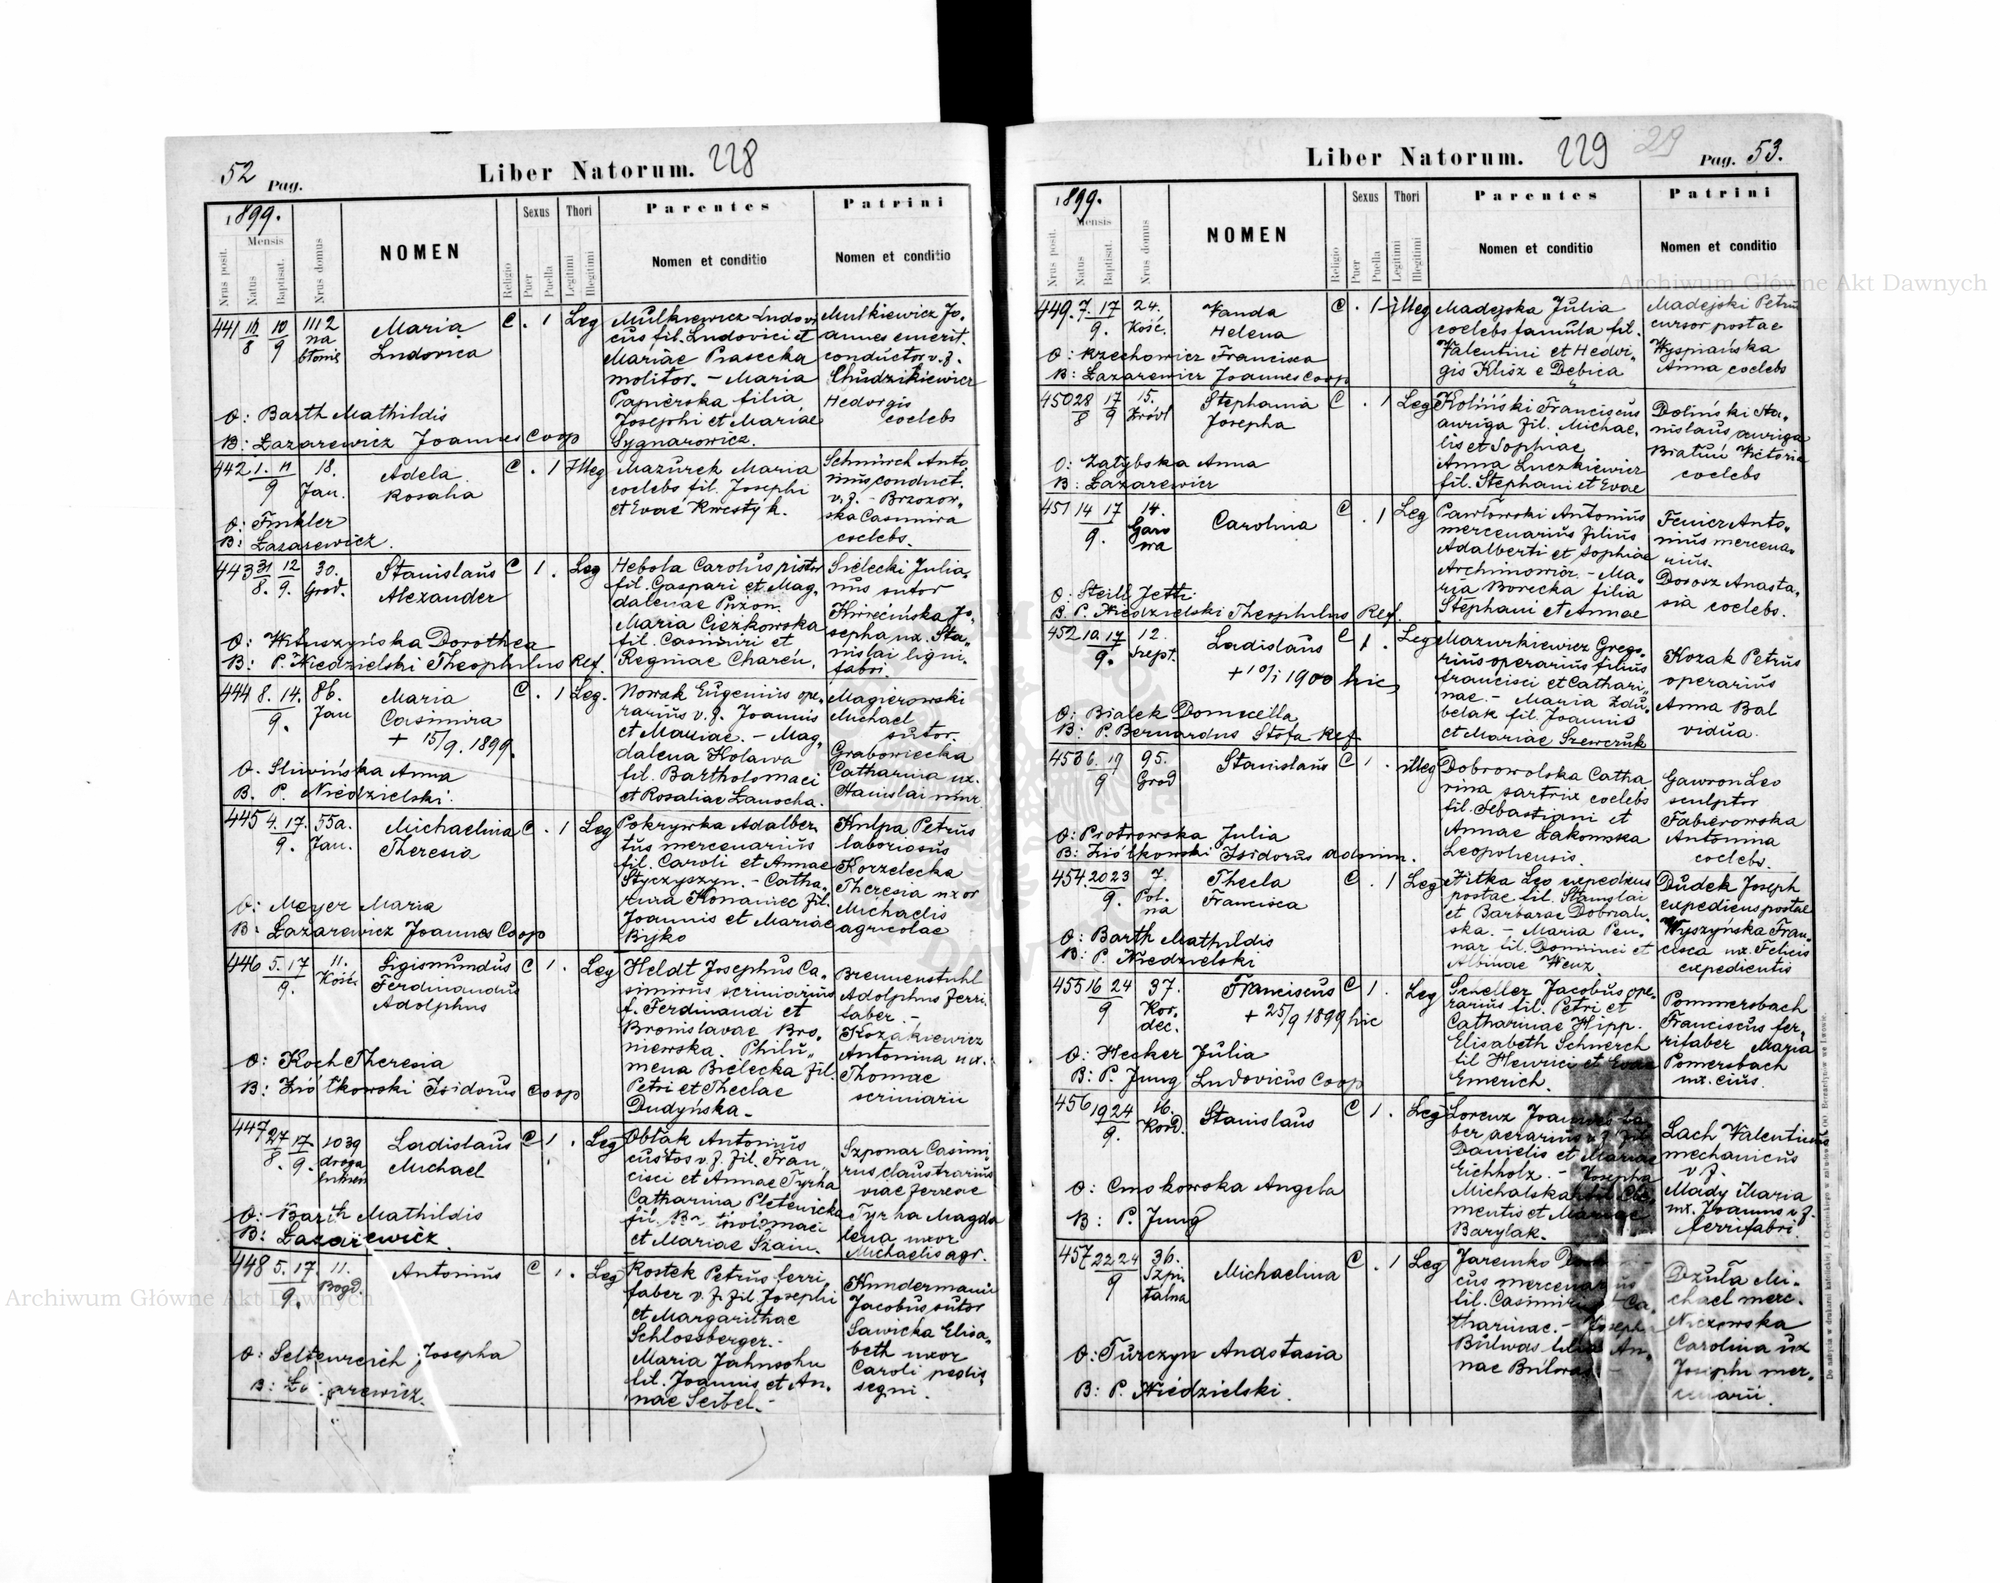 52 Pag.
Liber Natorum. 228
1899.
Nrus posit.
Mensis
Natus
Baptisat.
Nrus domus
NOMEN
Religio
Sexus
Puer
Puella
Thori
Legitimi
Illegitimi
Parentes
Nomen et conditio
Patrini
Nomen et conditio
441
8
10
9
1112
na
błonie
Maria
Ludovica
C . 1 Leg
Mulkiewicz Ludovi
cus fil. Ludovici et
Mariae Prasecka
molitor. - Maria
Papierska filia
Josephi et Mariae
Sygnarowicz.
Mulkiewicz Jo-
annes emerit.
conductor v. f.
Chudzikiewicz
Hedvigis
coelebs
O: Barth Mathildis
B: Łazarewicz Joannes Coop
442 1. 11
9
18.
Jan.
Adela
Rosalia
C . 1 Illeg
Mazurek Maria
coelebs fil. Josephi
et Evae Kwestyk.
Schnürch Anto
nius conduct.
v. f. - Brzozow-
ska Casimira
coelebs.
O: Finkler
B: Łazarewicz.
443 31 12
8. 9.
30.
Grod.
Stanislaus
Alexander
C 1 . Leg
Hebola Carolus pistor
fil. Gaspari et Mag-
dalenae Pyżon.
Maria Ciężkowska
fil. Casimiri et
Reginae Charen.
Sielecki Julia-
nus sutor
Kwiecińska Jo-
sepha ux. Sta-
nislai ligni-
fabri.
O: Wituszyńska Dorothea
B: P. Niedzielski Theophilus Ref.
444 8. 14.
9.
86.
Jan
Maria
Casimira
+ 15/9. 1899.
C . 1 Leg.
Nowak Eugenius ope-
rarius v. f. Joannis
et Mariae. - Mag-
dalena Kolawa
fil. Bartholomaei
et Rosaliae Łanocha.
Magierowski
Michael
sutor.
Grabowiecka
Catharina ux.
Stanislai mur.
O. Sliwińska Anna
B. P. Niedzielski.
445 4. 17.
9.
55a.
Jan.
Michaelina
Theresia
C . 1 Leg
Pokrywka Adalber-
tus mercenarius
fil. Caroli et Annae
Styczyszyn. - Catha-
rina Konaniec fil.
Joannis et Mariae
Bijko
Kulpa Petrus
laboriosus
Korzelecka
Theresia uxor
Michaelis
agricolae
O: Meyer Maria
B: Łazarewicz Joannes Coop
446 5. 17
9.
11.
Kość.
Sigismundus
Ferdinandus
Adolphus
C 1 . Leg
Heldt Josephus Ca-
simirus scriniarius
f. Ferdinandi et
Bronislavae Bro-
niewska. Philu-
mena Bielecka fil.
Petri et Theclae
Dudyńska. -
Brennenstuhl
Adolphus ferri
faber -
Kozakiewicz
Antonina ux.
Thomae
scriniarii
O: Koch Theresia
B: Ziółkowski Isidorus Coop
447 27 17
8. 9.
1039
droga
Ladislaus
Michael
C 1 . Leg
Oblak Antonius
custos v. f. fil. Fran-
cisci et Annae Tyrha
Catharina Pletenicka
fil. Bartholomaei
et Mariae Szain.
Szponar Casimi-
rus claustrarius
viae ferreae
Tyrha Magda
lena uxor
Michaelis agr.
O: Barth Mathildis
B: Łazarewicz.
448 5. 17.
9.
11.
Bogd.
Antonius
C 1 . Leg
Rostek Petrus ferri
faber v. f. fil. Josephi
et Margarithae
Schlossberger. -
Maria Jahnsohn
fil. Joannis et An-
nae Seibel. -
Kundermann
Jacobus sutor
Sawicka Elisa-
beth uxor
Caroli pedis-
segni.
O: Seltenreich Josepha
B: Łazarewicz.
Liber Natorum. 229 29 Pag. 53.
1899.
Nrus posit.
Mensis
Natus
Baptisat.
Nrus domus
NOMEN
Religio
Sexus
Puer
Puella
Thori
Legitimi
Illegitimi
Parentes
Nomen et conditio
Patrini
Nomen et conditio
449. 7. 17
9.
24.
Kość.
Wanda
Helena
C . 1 illeg
Madejska Julia
coelebs famula fil.
Valentini et Hedvi-
gis Klisz e Dębica
Madejski Petrus
cursor postae
Wyspiańska
Anna coelebs
O: Krzechowicz Francisca
B: Łazarewicz Joannes Coop
450 28 17
8 9
15.
Źródl
Stephania
Josepha
C . 1 Leg
Koliński Franciscus
auriga fil. Michae-
lis et Sophiae
Anna Luczkiewicz
fil. Stephani et Evae
Doliński Sta-
nislaus auriga
Bratuń Victoria
coelebs
O: Zatybska Anna
B: Łazarewicz
451 14 17
9.
14.
Garo
wa
Carolina
C . 1 Leg
Pawłowski Antonius
mercenarius filius
Adalberti et Sophiae
Archimowicz. - Ma-
ria Borecka filia
Stephani et Annae
Fenicz Anto-
nius mercena-
rius.
Dorosz Anasta-
sia coelebs.
O: Steill Jetti
B. P. Niedzielski Theophilus Ref.
452 10 17
9.
12.
Szept.
Ladislaus
+ 10/1 1900 hic
C 1 . Leg
Mazurkiewicz Grego-
rius operarius filius
Francisci et Cathari-
nae. - Maria Zdu-
belak fil. Joannis
et Mariae Szewczuk
Kozak Petrus
operarius
Anna Bal
vidua.
O: Białek Domicella
B: P. Bernardus Stofa Ref
453 6. 19
9
95.
Grod
Stanislaus
C 1 . illeg
Dobrowolska Catha
rina sartrix coelebs
fil. Sebastiani et
Annae Łakomska
Leopoliensis.
Gawron Leo
sculptor
Fabierowska
Antonina
coelebs.
O: Piotrowska Julia
B: Ziółkowski Isidorus admin.
454. 20 23
9.
7.
Pol-
na
Thecla
Francisca
C . 1 Leg
Zitka Leo expediens
postae fil. Stanislai
et Barbarae Dobrzań-
ska. - Maria Pen-
nar fil. Dominici et
Albinae Wenz
Dudek Joseph
expediens postae
Wyszyńska Fran-
cisca ux. Felicis
expedientis
O: Barth Mathildis
B: P. Niedzielski
455 16 24
9
37.
Kor-
dec.
Franciscus
+ 25/9 1899 hic
C 1 . Leg
Scheller Jacobus ope-
rarius fil. Petri et
Catharinae Hipp.
Elisabeth Schnerch
fil Henrici et Evae
Emerich.
Pommersbach
Franciscus fer-
rifaber Maria
Pomersbach
ux. eius.
O: Hecker Julia
B: P. Jung Ludovicus Coop
456 19 24
9.
16.
Kord.
Stanislaus
C 1 . Leg
Lorenz Joannes fa-
ber aerarius v. f. fil.
Danielis et Mariae
Eichholz. - Josepha
Michalska fil. Cle-
mentis et Mariae
Barylak.
Lach Valentinus
mechanicus
v. f.
Mady Maria
ux. Joannis v. f.
ferrifabri.
O: Cmokowska Angela
B: P. Jung
457 22 24
9
36.
Szpi-
talna
Michaelina
C . 1 Leg
Jaremko
cus mercenarius
fil. Casimiri et Ca-
tharinae. - Josepha
Bulwas filia An-
nae Bulwas -
Dzuła Mi-
chael merc.
Niczowska
Carolina ux
Josephi mer-
cenarii.
O: Turczyn Anastasia
B: P. Niedzielski.
Archiwum Główne Akt Dawnych
Archiwum Główne Akt Dawnych